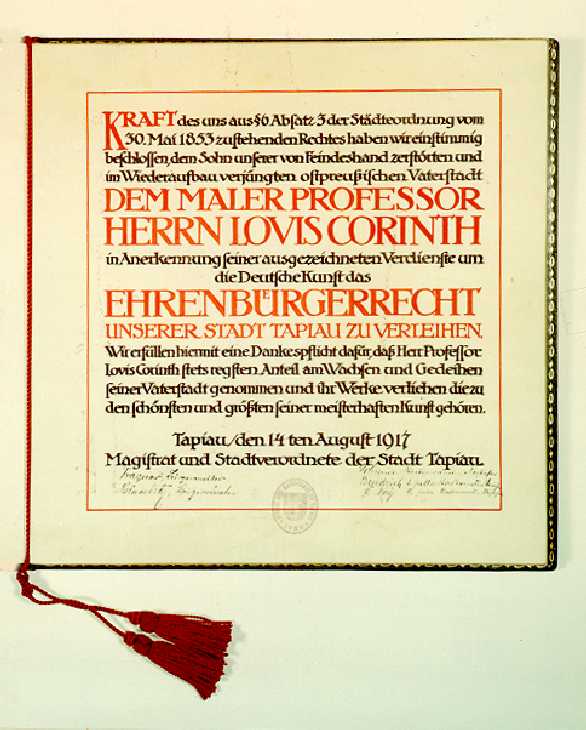 KRAFT des uns aus §6 Absatz 3 der Städteordnung vom
30. Mai 1853 zustehenden Rechtes haben wir einstimmig
beschlossen, dem Sohn unserer von Feindeshand zerstörten und
im Wiederaufbau verjüngten ostpreußischen Vaterstadt
DEM MALER PROFESSOR
HERRN LOVIS CORINTH
in Anerkennung seiner ausgezeichneten Verdienste um
die Deutsche Kunst das
EHRENBÜRGERRECHT
UNSERER STADT TAPIAU ZU VERLEIHEN.
Wir erfüllen hiermit eine Dankespflicht dafür, daß Herr Professor
Lovis Corinth stets regsten Anteil am Wachsen und Gedeihen
seiner Vaterstadt genommen und ihr Werke verliehen die zu
den schönsten und größten seiner meisterhaften Kunst gehören.
Tapiau, den 14 ten August 1917
Magistrat und Stadtverordnete der Stadt Tapiau.